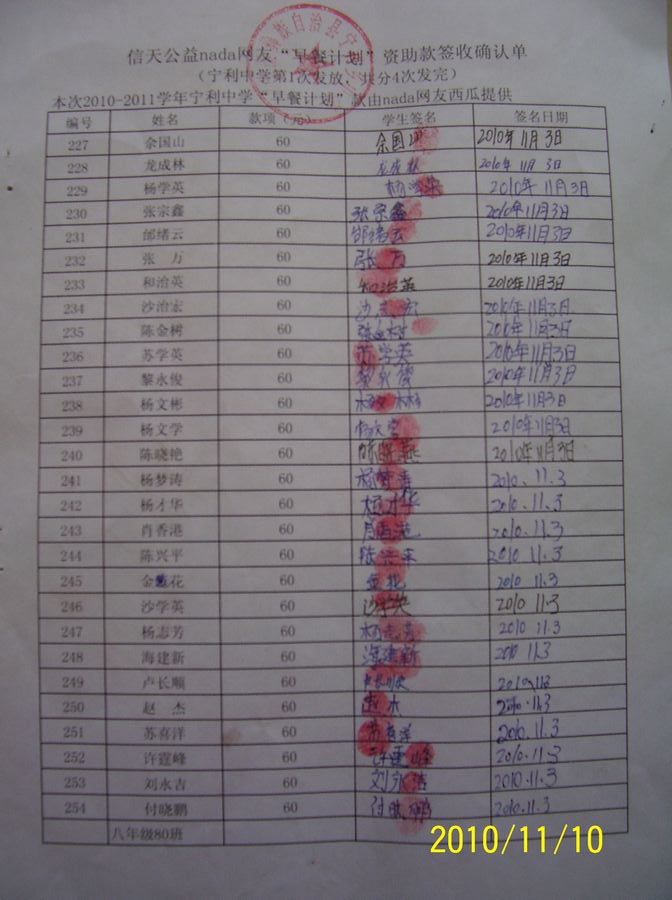 族自治县宁
信天公益nada网友“早餐计划”资助款签收确认单
(宁利中学第1次发放、共分4次发完)
本次2010-2011学年宁利中学“早餐计划”款由nada网友西瓜提供
编号 姓名 款项(元) 学生签名 签名日期
227 余国山 60 余国山 2010年11月3日
228 龙成林 60 龙成林 2010年11月3日
229 杨学英 60 杨学英 2010年11月3日
230 张宗鑫 60 张宗鑫 2010年11月3日
231 邰绪云 60 邰绪云 2010年11月3日
232 张万 60 张万 2010年11月3日
233 和治英 60 和治英 2010年11月3日
234 沙治宏 60 沙志宏 2010年11月3日
235 陈金树 60 陈金树 2010年11月3日
236 苏学英 60 苏学英 2010年11月3日
237 黎永俊 60 2010年11月3日
238 杨文彬 60 杨文彬 2010年11月3日
239 杨文学 60 杨文学 2010年11月3日
240 陈晓艳 60 2010年11月3日
241 杨梦涛 60 杨梦涛 2010.11.3
242 杨才华 60 杨才华 2010.11.3
243 肖香港 60 肖香港 2010.11.3
244 陈兴平 60 陈兴平 2010 11.3
245 金葱花 60 金花 2010 11.3
246 沙学英 60 沙学英 2010 11.3
247 杨志芳 60 杨志芳 2010 11.3
248 海建新 60 海建新 2010 11.3
249 卢长顺 60 卢长顺 2010.11.3
250 赵杰 60 赵杰 2010.11.3
251 苏喜洋 60 苏喜洋 2010.11.3
252 许霆峰 60 许霆峰 2010.11.3
253 刘永吉 60 刘永洁 2010.11.3
254 付晓鹏 60 付晓鹏 2010.11.3
八年级80班
2010/11/10